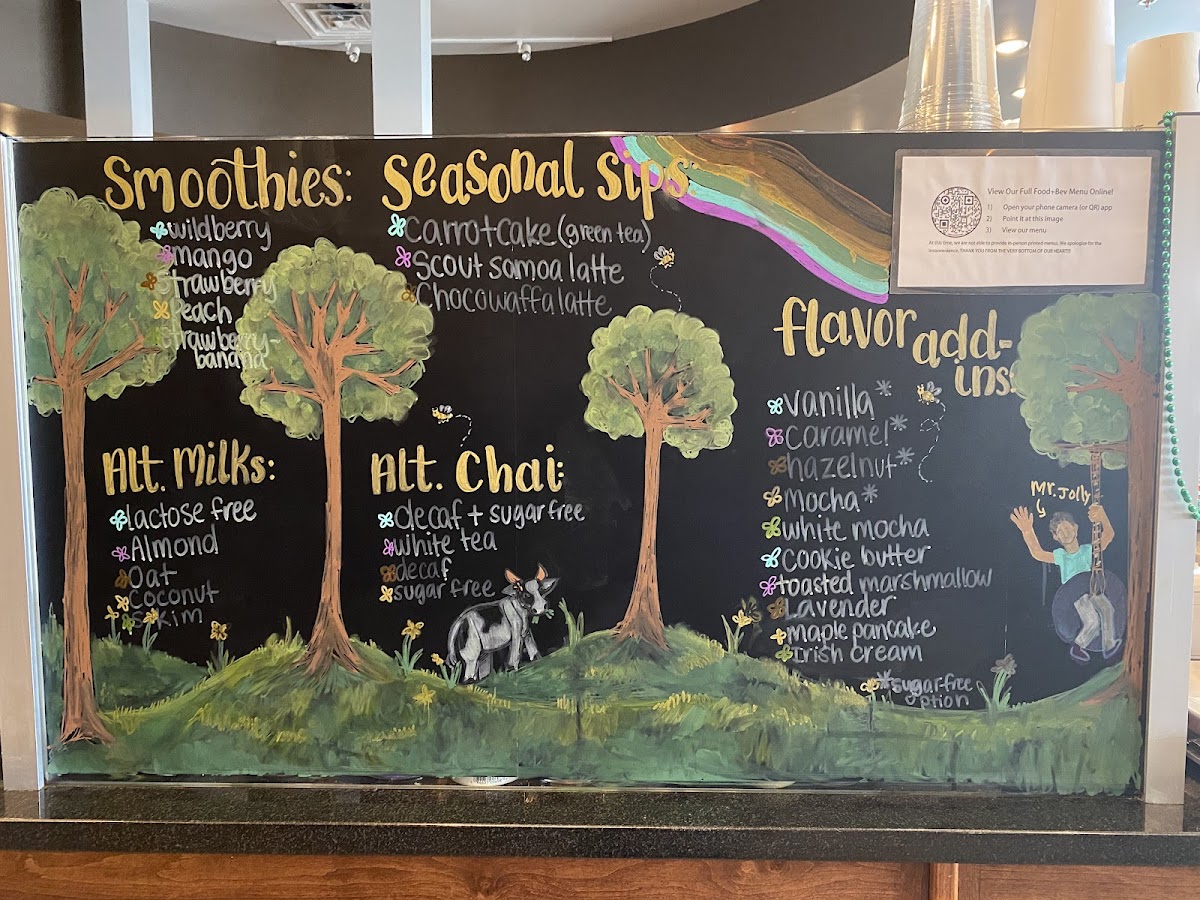 Smoothies:
wildberry
mango
strawberry
Peach
strawberry-
banana
Seasonal Sips:
Carrotcake (green tea)
Scout Samoa latte
Chocowaffa latte
View Our Full Food+Bev Menu Online!
1) Open your phone camera (or QR) app
2) Point it at this image
3) View our menu
At this time, we are not able to provide in-person printed menus. We apologize for the
inconvenience, THANK YOU FROM THE VERY BOTTOM OF OUR HEARTS!
flavor add-
ins:
vanilla*
Caramel*
hazelnut*
Mocha*
white mocha
Cookie butter
toasted marshmallow
Lavender
maple pancake
Irish cream
*sugar-free
option
Alt. Milks:
lactose free
Almond
Oat
Coconut
Skim
Alt. Chai:
decaf + sugar free
white tea
decaf
sugar free
Mr. Jolly